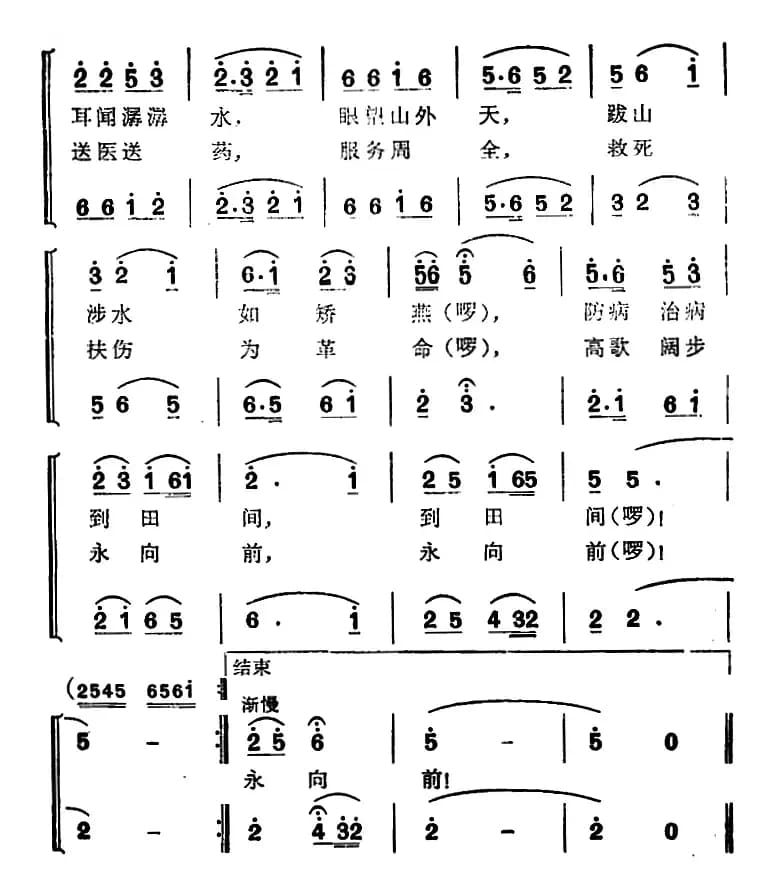 2 2 5 3 | 2·3 2 1 | 6 6 1 6 | 5·6 5 2 | 5 6 1
耳闻潺潺 水, 眼望山外 天, 跋山
送医送 药, 服务周 全, 救死
6 6 1 2 | 2·3 2 1 | 6 6 1 6 | 5·6 5 2 | 3 2 3
3 2 1 | 6·1 2 3 | 56 5 6 | 5·6 5 3
涉水 如 矫 燕(啰), 防病 治病
扶伤 为 革 命(啰), 高歌 阔步
5 6 5 | 6·5 6 1 | 2 3· | 2·1 6 1
2 3 1 61 | 2· 1 | 2 5 1 65 | 5 5·
到 田 间, 到 田 间(啰)!
永 向 前, 永 向 前(啰)!
2 1 6 5 | 6· 1 | 2 5 4 32 | 2 2·
(2545 6561 :‖ 结束
渐慢
5 – :‖ 2 5 6 | 5 – | 5 0 ‖
永 向 前!
2 – :‖ 2 4 32 | 2 – | 2 0 ‖